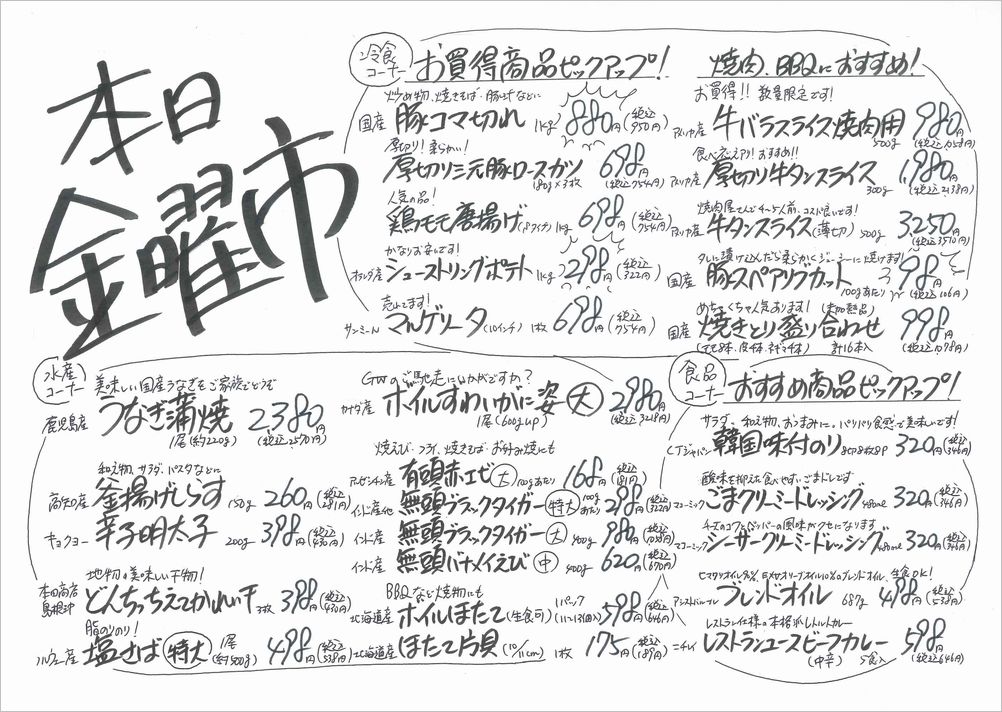 本日
金曜市
冷食コーナー
お買得商品ピックアップ!
炒め物、焼きそば・豚汁などに
国産 豚コマ切れ 1kg 880円(税込950円)
厚切り!柔らかい!
厚切り三元豚ロースカツ 180g×3枚 698円(税込754円)
人気の品!
鶏モモ唐揚げ 1kg 698円(税込754円)
かなりお安いです!
オランダ産 シューストリングポテト 1kg 298円(税込322円)
売れてます!
マルゲリータ(10インチ) 1枚 698円(税込754円)
焼肉、BBQにおすすめ!
お買得!!数量限定です!
アメリカ産 牛バラスライス焼肉用 500g 980円(税込1058円)
食べごたえアリ!おすすめ!!
アメリカ産 厚切り牛タンスライス 300g 1,980円(税込2138円)
焼肉屋さんで4〜5人前、コスパ良いです!
アメリカ産 牛タンスライス(薄切り) 500g 3250円(税込3510円)
タレに漬け込んだら柔らかくジューシーに焼けます!
国産 豚スペアリブカット 100gあたり 98円(税込106円)
めちゃくちゃ人気あります!(未加熱品)
国産 焼きとり盛り合わせ 998円(税込1078円)
(モモ8本、皮4本、ネギマ4本) 計16本入
水産コーナー
美味しい国産うなぎをご家族でどうぞ
鹿児島産 うなぎ蒲焼 1尾(約220g) 2380円(税込2570円)
和え物、サラダ、パスタなどに
高知産 釜揚げしらす 150g 260円(税込281円)
キョクヨー 辛子明太子 200g 398円(税込430円)
地物の美味しい干物!
本田商店 島根沖 どんちっちえてかれい干 3枚 398円(税込430円)
脂のりのり!
ノルウェー産 塩さば(特大) 1尾(約500g) 498円(税込538円)
GWのご馳走にいかがですか?
カナダ産 ボイルずわいがに姿(大) 1尾(600gup) 2980円(税込3218円)
焼えび・フライ、焼きそば・お好み焼にも
アルゼンチン産 有頭赤エビ(大) 100gあたり 168円(税込181円)
インド産他 無頭ブラックタイガー(特大) 100gあたり 298円(税込322円)
インド産 無頭ブラックタイガー(大) 400g 980円(税込1058円)
インド産 無頭バナメイえび(中) 400g 620円(税込670円)
BBQなど焼物にも
北海道産 ボイルほたて(生食可) 1パック(11〜13個入) 598円(税込646円)
北海道産 ほたて片貝(10/11cm) 1枚 175円(税込189円)
食品コーナー
おすすめ商品ピックアップ!
サラダ、和え物、おつまみに。パリパリ食感で美味しいです!
CJジャパン 韓国味付のり 8切8枚8P 320円(税込346円)
酸味を抑え食べやすい、ごまドレです
ケンコーマヨネーズ ごまクリーミードレッシング 480ml 320円(税込346円)
チーズのコクとペッパーの風味がクセになります
シーザークリーミードレッシング 480ml 320円(税込346円)
ヒマワリオイル90%、EXVオリーブオイル10%のブレンドオイル 生食OK!
ブレンドオイル 687g 498円(税込538円)
レストラン仕様の本格派レトルトカレー
ニチレイ レストランユースビーフカレー 598円(税込646円)
(中辛) 5食入